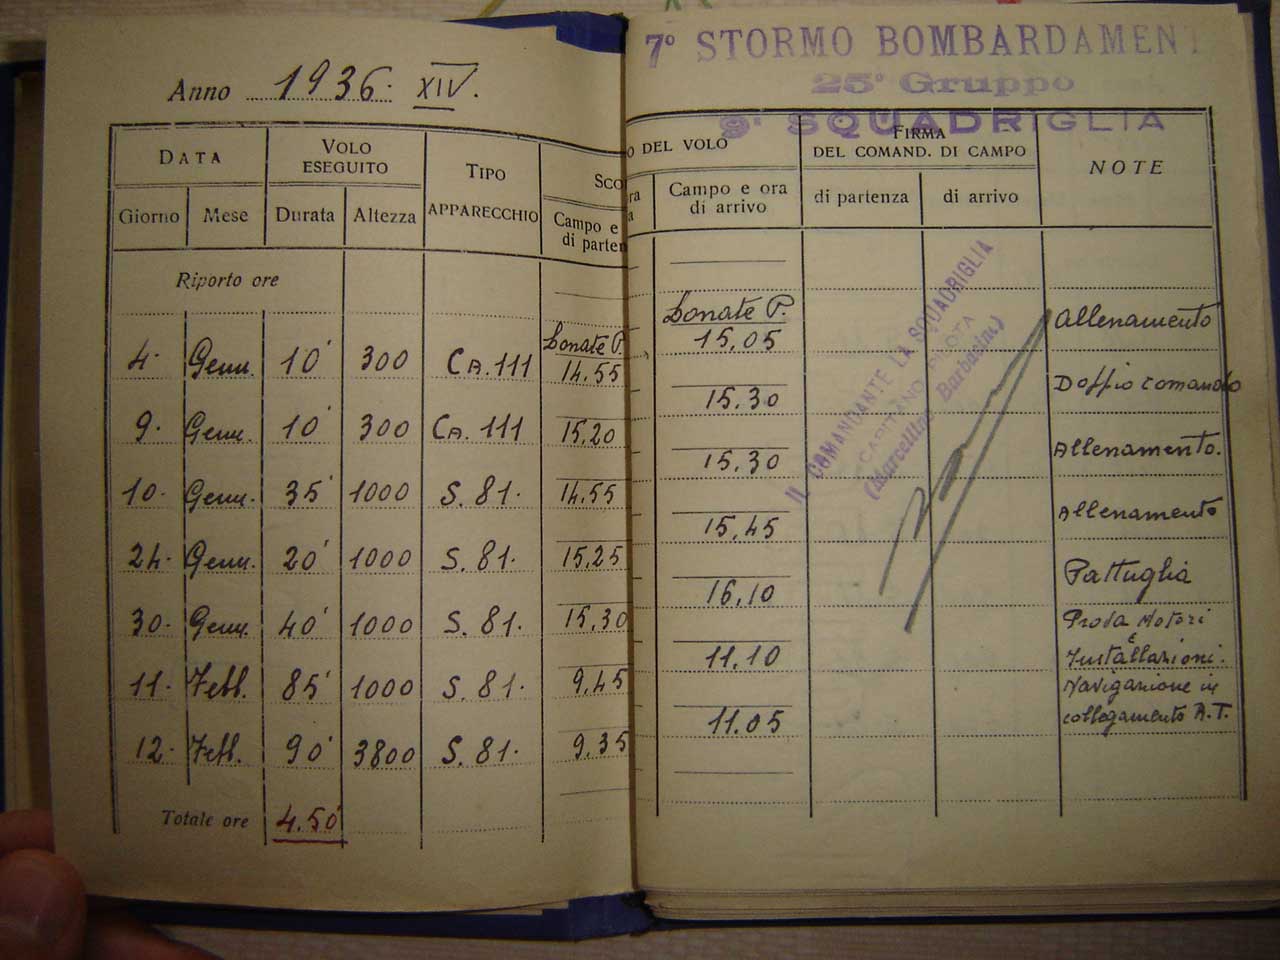 Anno 1936. XIV.
7º STORMO BOMBARDAMEN
25º Gruppo
9ª SQUADRIGLIA
DATA VOLO ESEGUITO TIPO APPARECCHIO SCO O DEL VOLO FIRMA DEL COMAND. DI CAMPO NOTE
Giorno Mese Durata Altezza Campo e di parten ra a Campo e ora di arrivo di partenza di arrivo
Riporto ore
4. Genn. 10' 300 CA.111 Lonate P. 14.55 Lonate P. 15,05 Allenamento
9. Genn. 10' 300 CA.111 15,20 15.30 Doppio comando
10. Genn. 35' 1000 S. 81. 14.55 15.30 Allenamento.
24. Genn. 20' 1000 S. 81. 15,25 15,45 Allenamento
30. Genn. 40' 1000 S. 81. 15,30 16,10 Pattuglia
11. Febb. 85' 1000 S. 81. 9,45 11,10 Prova Motori e Installazioni.
12. Febb. 90' 3800 S. 81. 9,35 11.05 Navigazione in collegamento R.T.
Totale ore 4.50'
IL COMANDANTE LA SQUADRIGLIA
CAPITANO PILOTA